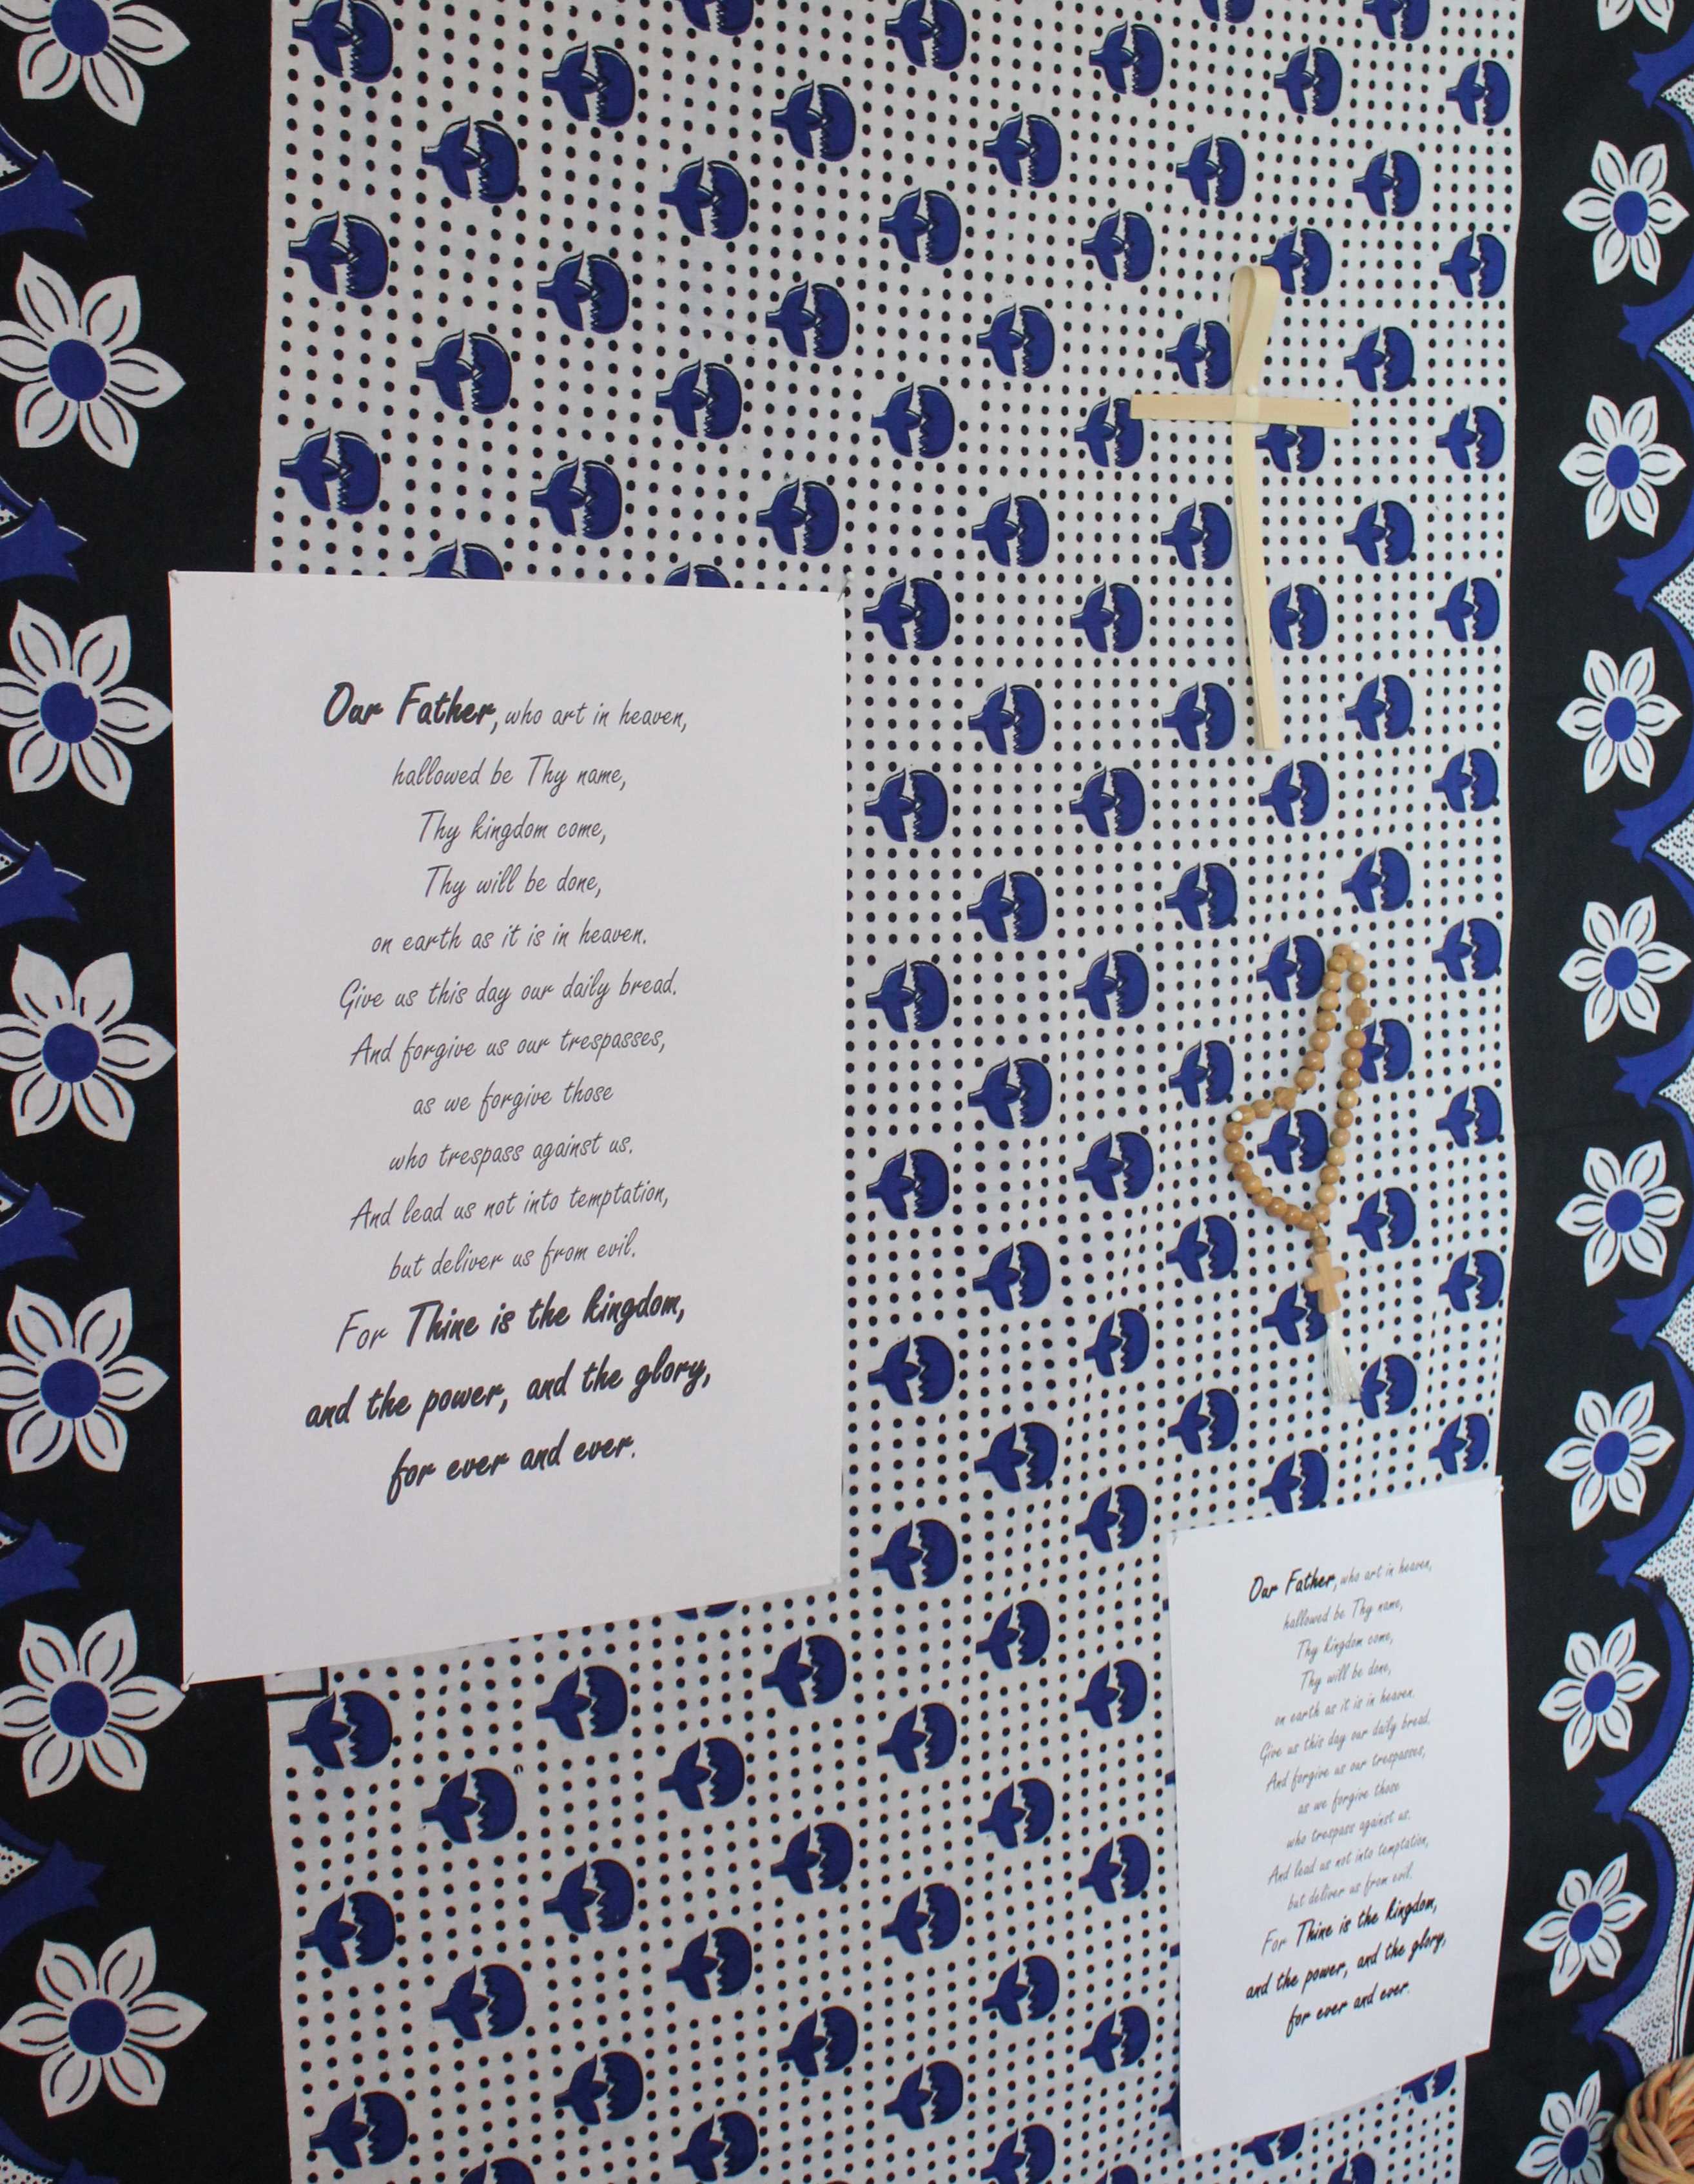 Our Father, who art in heaven,
hallowed be Thy name,
Thy kingdom come,
Thy will be done,
on earth as it is in heaven.
Give us this day our daily bread.
And forgive us our trespasses,
as we forgive those
who trespass against us.
And lead us not into temptation,
but deliver us from evil.
For Thine is the kingdom,
and the power, and the glory,
for ever and ever.
Our Father, who art in heaven,
hallowed be Thy name,
Thy kingdom come,
Thy will be done,
on earth as it is in heaven.
Give us this day our daily bread.
And forgive us our trespasses,
as we forgive those
who trespass against us.
And lead us not into temptation,
but deliver us from evil.
For Thine is the kingdom,
and the power, and the glory,
for ever and ever.